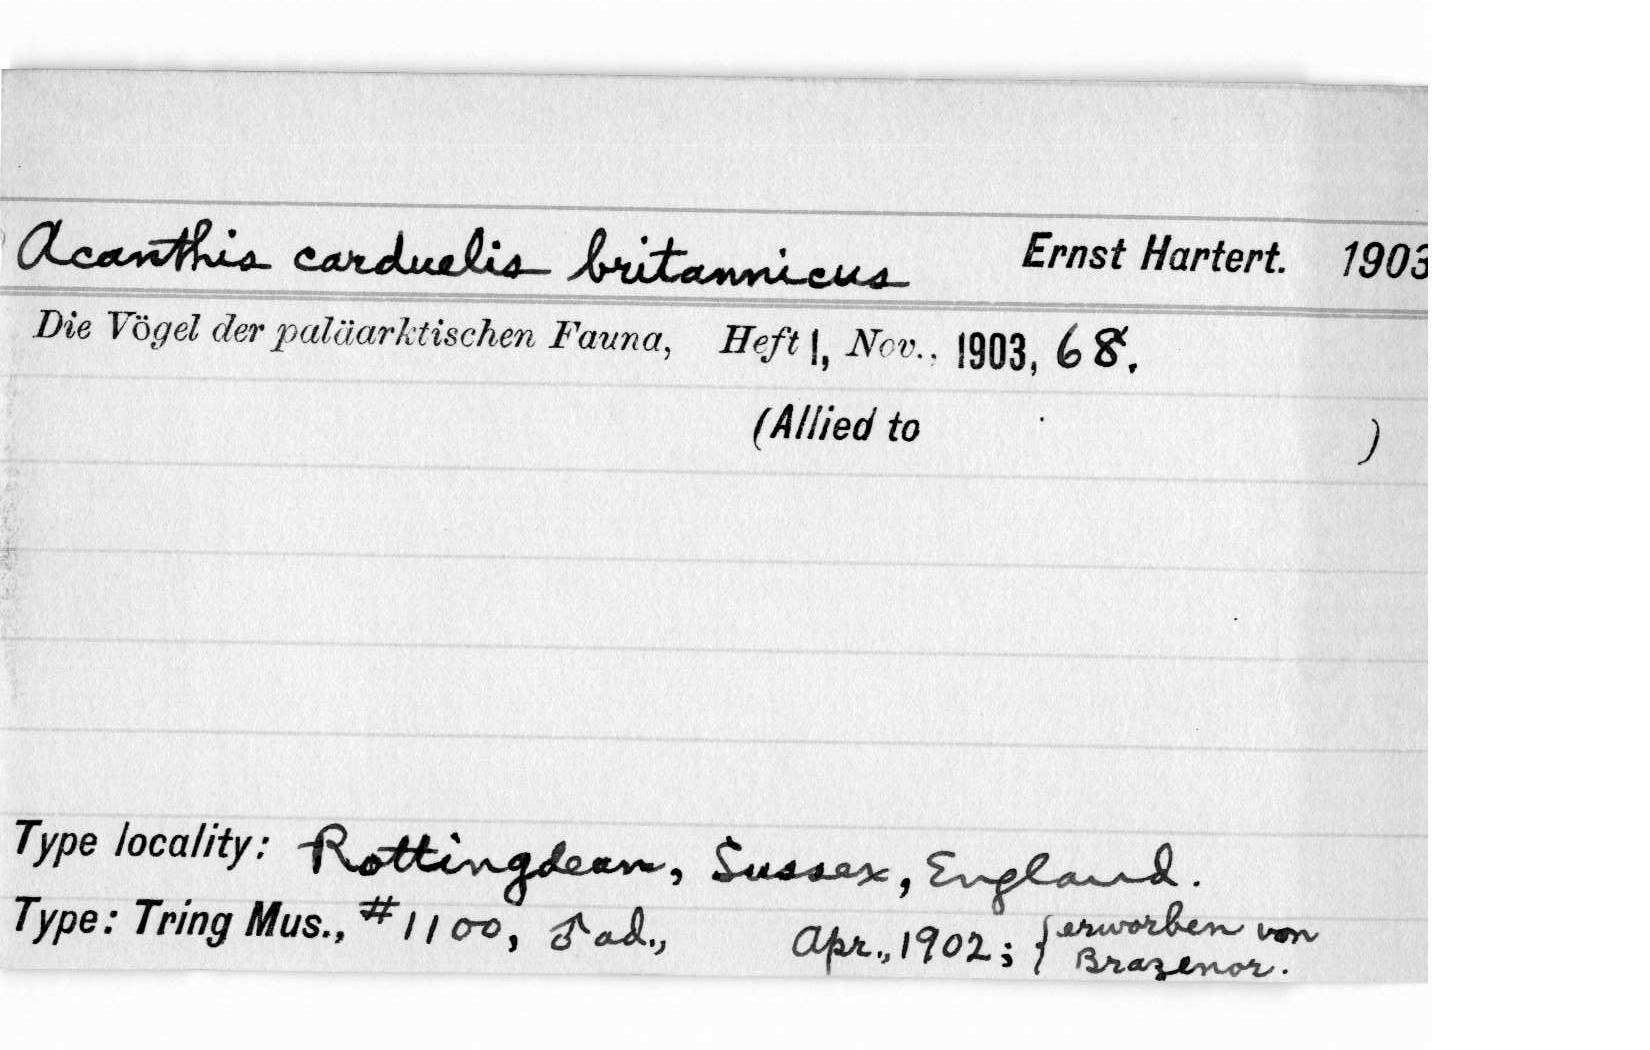 Acanthis carduelis britannicus Ernst Hartert. 1903
Die Vögel der paläarktischen Fauna, Heft 1, Nov., 1903, 68.
(Allied to )
Type locality: Rottingdean, Sussex, England.
Type: Tring Mus., #1100, ♂ ad., Apr., 1902; { erworben von
Brazenor.